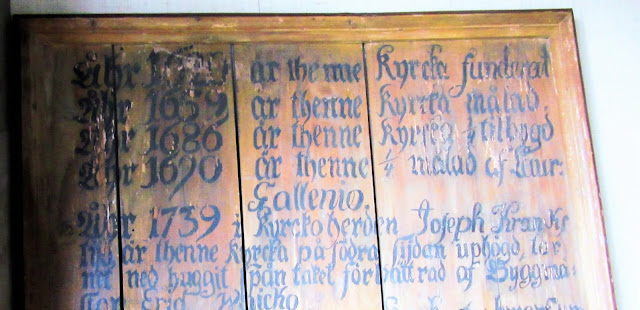 Åhr är thenne Kyrcka funderat
Åhr 1659 är thenne Kyrcka målad,
Åhr 1686 är thenne Kyrcka tilbygd
Åhr 1690 är thenne målad af
Gallenio.
Åhr 1739 i Kyrckoherden Joseph Kranks
tid är thenne Kyrcka på södra sijdan uphögd,
ned huggit taket förbättrad af Byggmä-
Eric